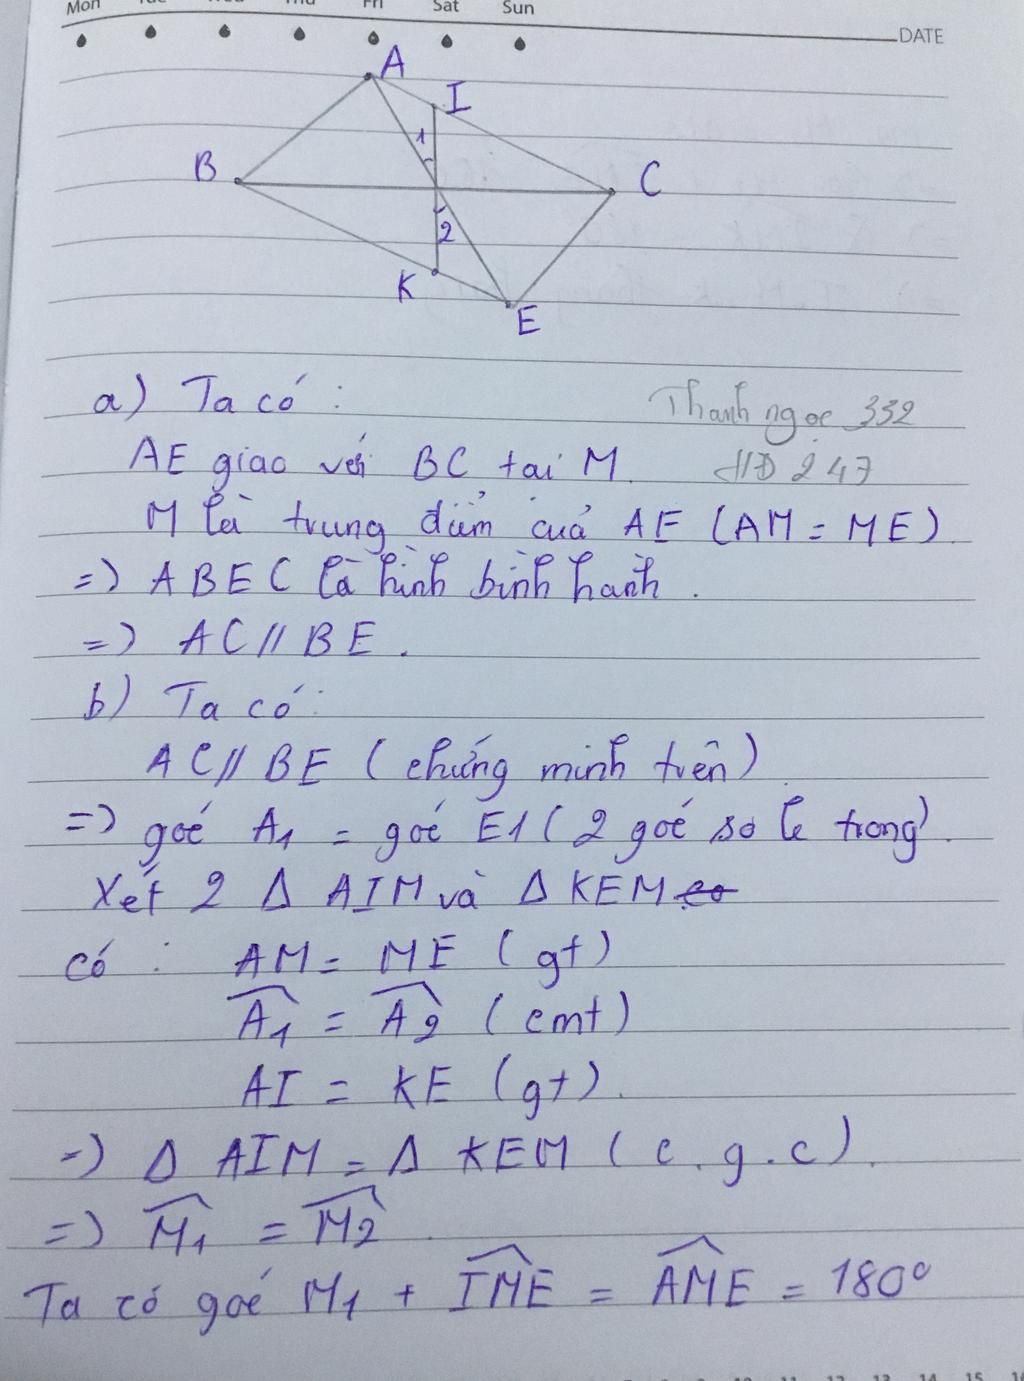 Mon Tue Wed Thu Fri Sat Sun
DATE
A
I
1
B
C
2
K
E
a) Ta có :
Thanh ngoc 332
AE giao với BC tại M.
HĐ 247
M là trung điểm của AE (AM = ME)
=) ABEC là hình bình hành .
=) AC // BE .
b) Ta có :
AC // BE ( chứng minh trên )
=) goé A1 = goé E1 ( 2 goé so le trong)
Xét 2 Δ AIM và Δ KEM
có : AM = ME ( gt )
A1 = A2 ( cmt )
AI = KE ( gt ) .
=) Δ AIM = Δ KEM ( c . g . c ) .
=) M1 = M2 .
Ta có goé M1 + IME = AME = 180°
11 12 13 14 15